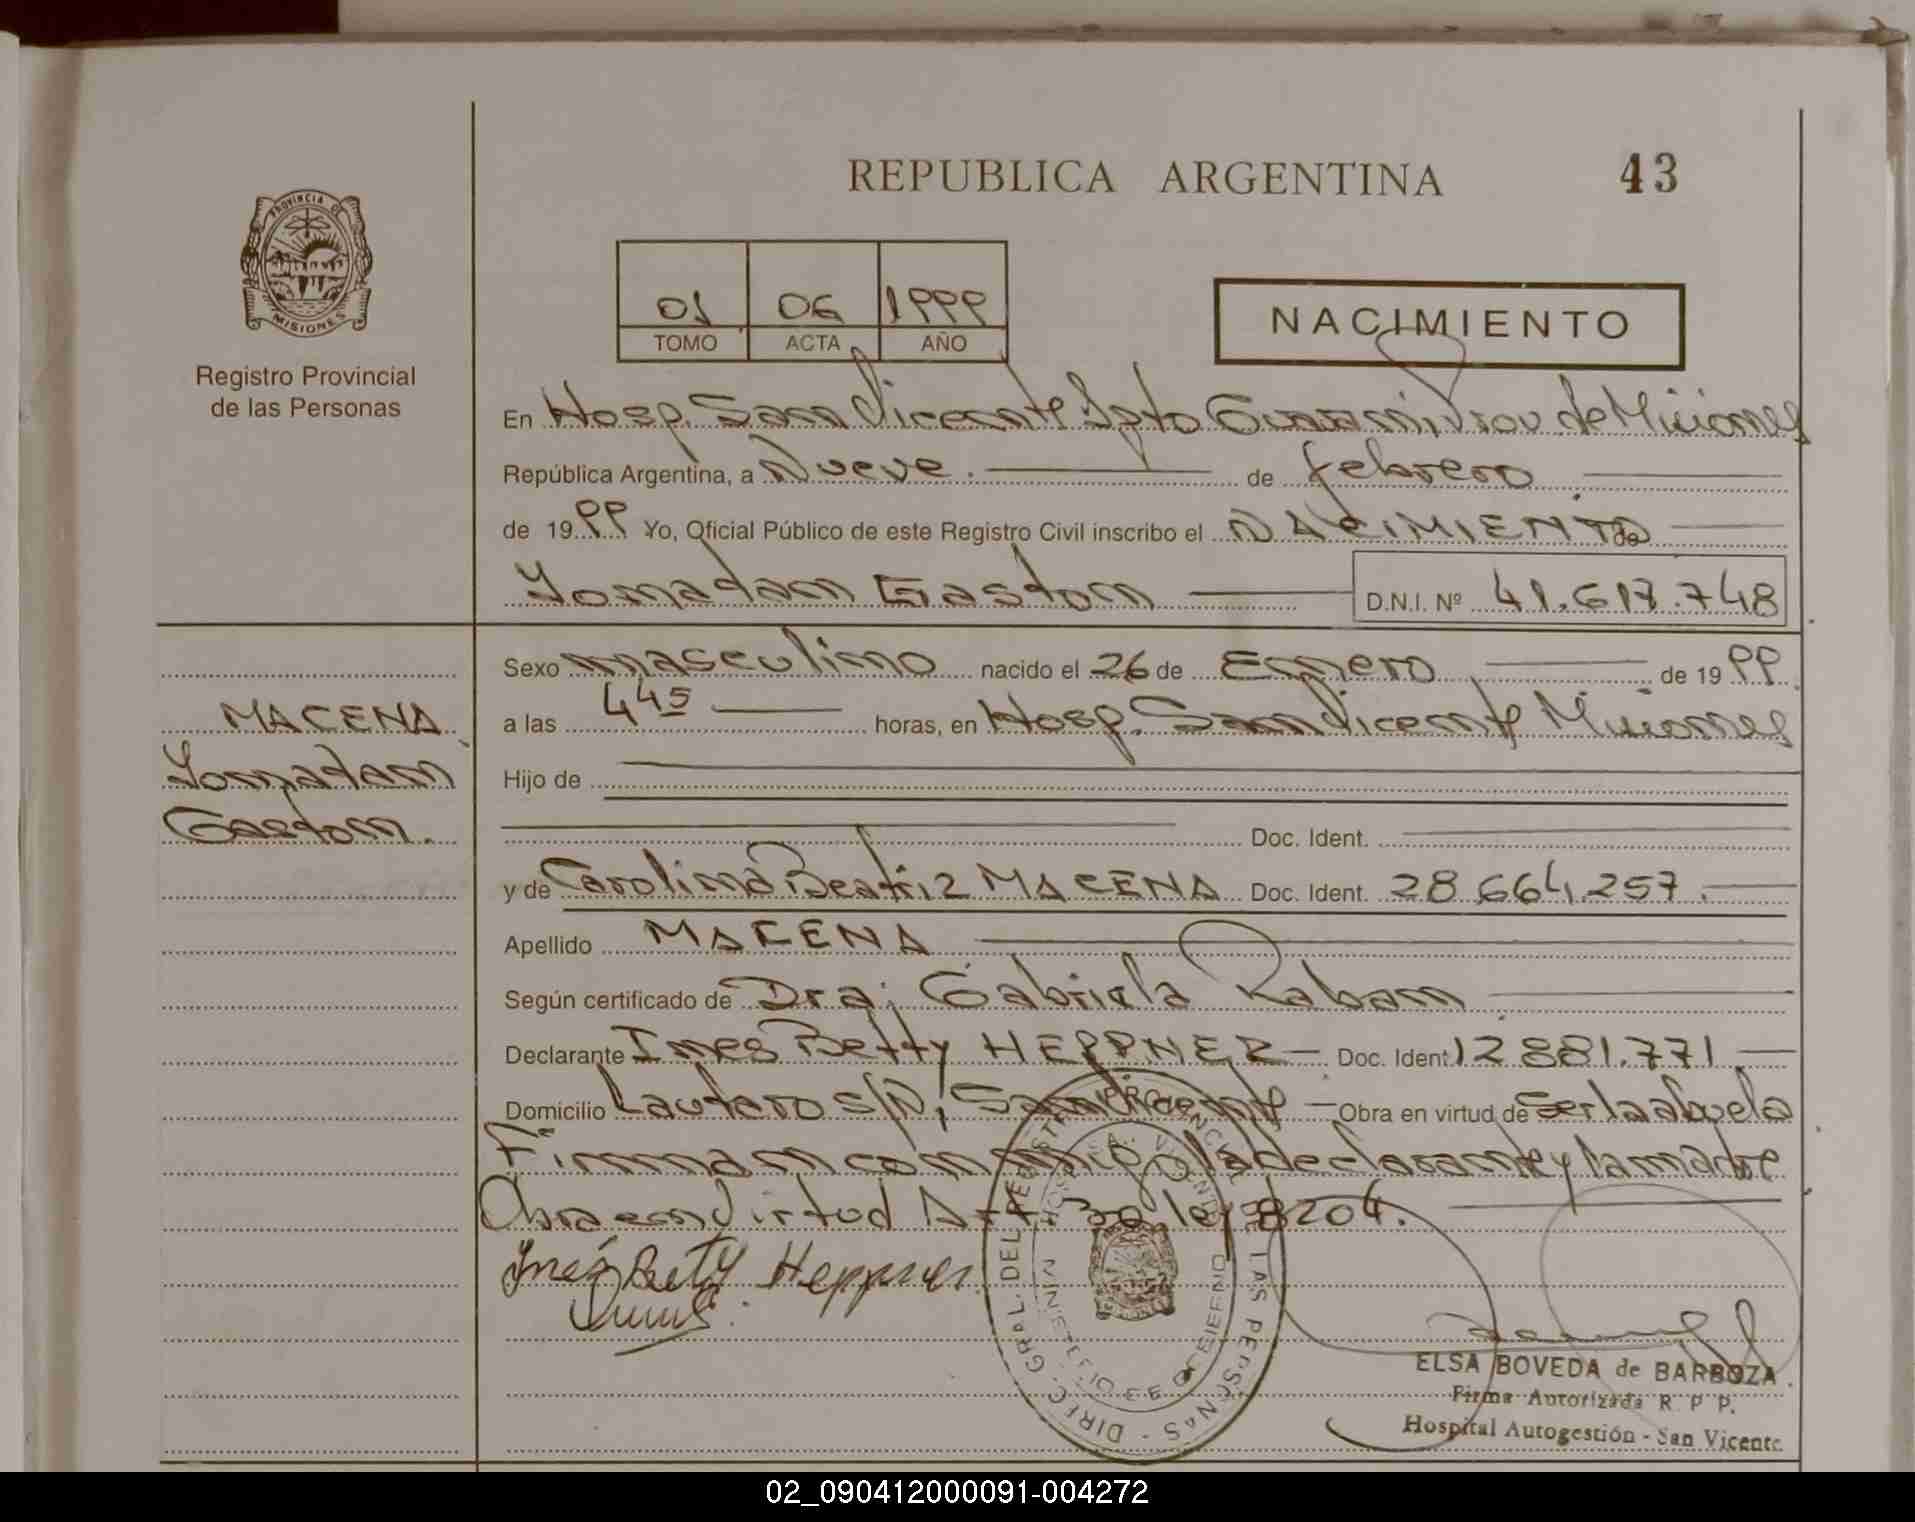 REPUBLICA ARGENTINA 43
PROVINCIA DE
MISIONES
Registro Provincial
de las Personas
01 06 1999
TOMO ACTA AÑO
NACIMIENTO
En Hosp. San Vicente Dpto Guaraní Prov. de Misiones
República Argentina, a Nueve. de febrero
de 1999 Yo, Oficial Público de este Registro Civil inscribo el NACIMIENTO de
Yonatan Gaston D.N.I. Nº 41.617.748
Sexo masculino nacido el 26 de Enero de 1999
a las 4 45 horas, en Hosp. San Vicente Misiones
Hijo de
Doc. Ident.
y de Carolina Beatriz MACENA Doc. Ident. 28.664.257.
Apellido MACENA
Según certificado de Dra. Gabriela Raban
Declarante Ines Betty HEPPNER Doc. Ident. 12.881.771
Domicilio Lautaro S/N, San Vicente Obra en virtud de Ser la abuela
Firman conmigo la declarante y la madre
Obra en virtud Art. 30 ley 8204.
MACENA
Yonatan
Gaston.
Inés Betty Heppner
DIREC. GRAL. DEL REGISTRO PROVINCIAL DE LAS PERSONAS
HOSP. SAN VICENTE
MINISTERIO DE GOBIERNO
ELSA BOVEDA de BARBOZA
Firma Autorizada R. P. P.
Hospital Autogestión - San Vicente
02_090412000091-004272